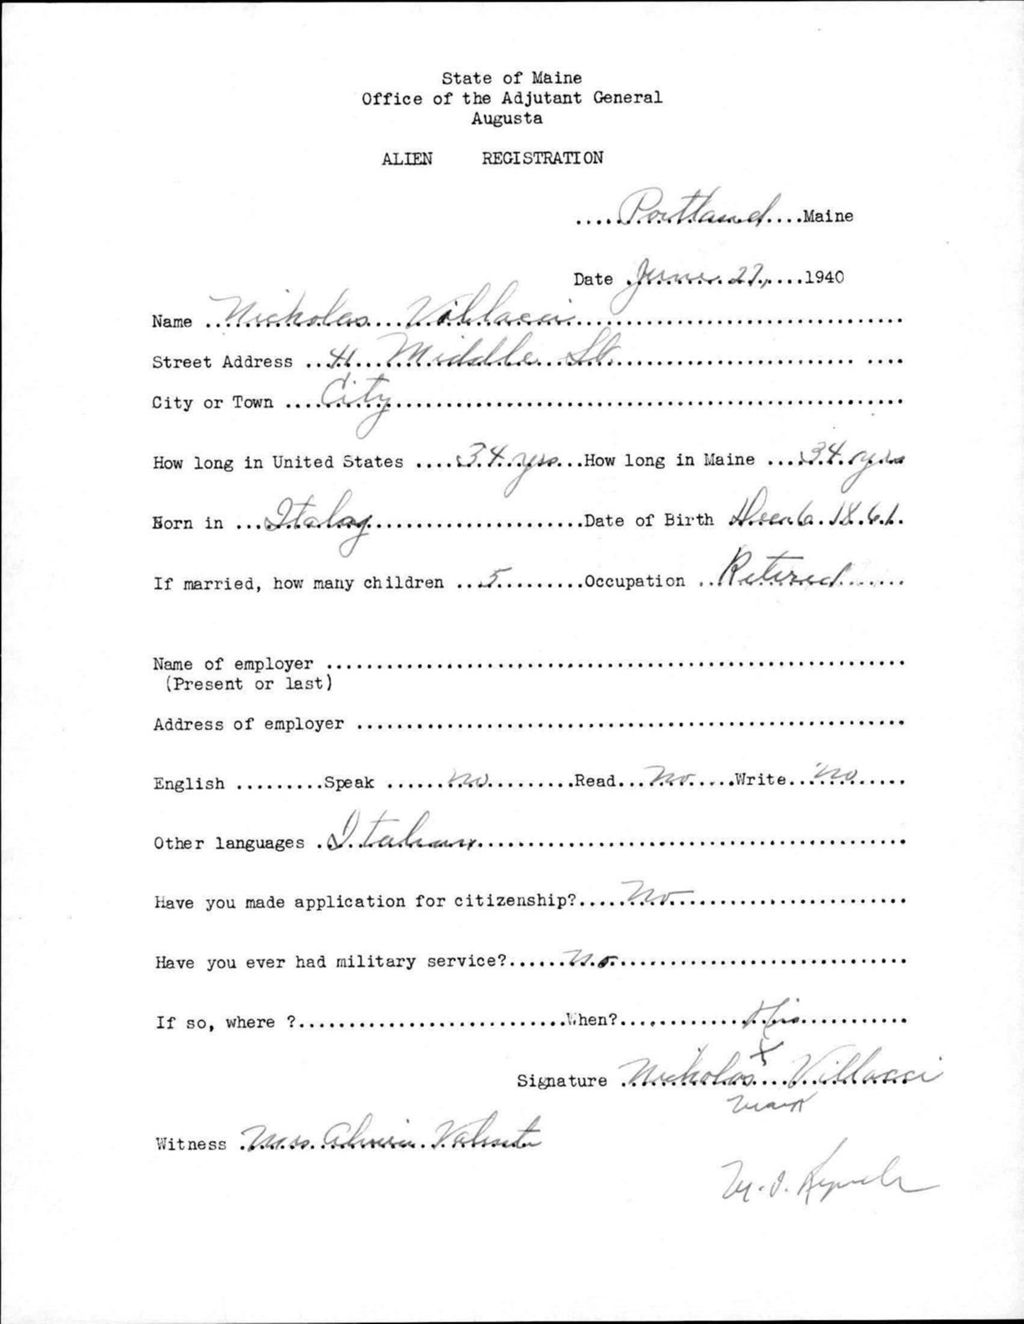 State of Maine
Office of the Adjutant General
Augusta
ALIEN REGISTRATION
.....Portland....Maine
Date .June 27,....1940
Name ..Nicholas Villacci.................................
Street Address ..41 Middle St............................. ....
City or Town ....City...................................................
How long in United States ....34 yrs...How long in Maine ...34 yrs
Born in ...Italy......................Date of Birth Dec 6. 1861.
If married, how many children ...5.........Occupation ..Retired......
Name of employer ..........................................................
(Present or last)
Address of employer .......................................................
English .........Speak ......no.........Read...no.....Write..no.....
Other languages .Italian...........................................
Have you made application for citizenship?.....no......................
Have you ever had military service?......no.............................
If so, where ?...........................When?............His...........
X
Signature .Nicholas....Villacci
mark
Witness .Mrs.
M. J.